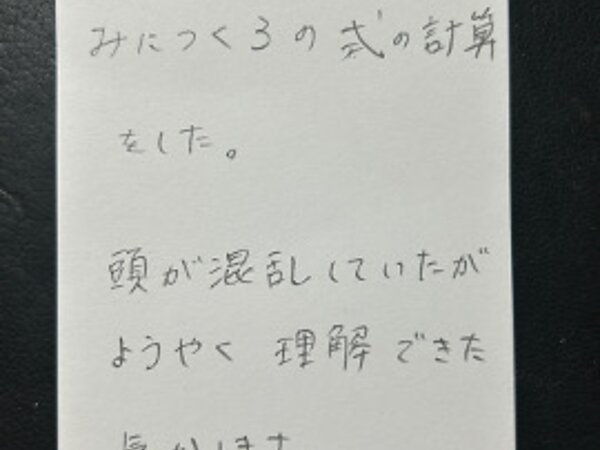 みにつくろの式の計算
をした。
頭が混乱していたが
ようやく理解できた
気がします